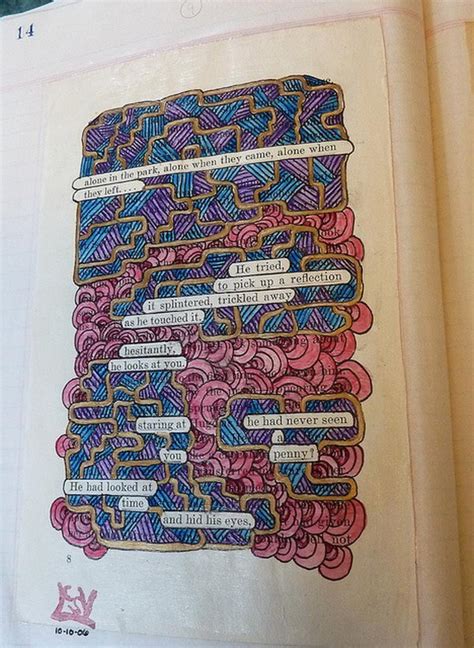 14
alone in the park, alone when they came, alone when
they left. . . .
He tried,
to pick up a reflection
it splintered, trickled away
as he touched it.
hesitantly,
he looks at you,
staring at
he had never seen
you
penny?
He had looked at
time
and hid his eyes,
8
10-10-06